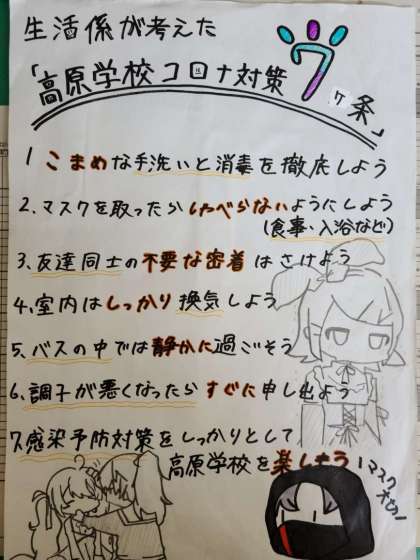 生活係が考えた
「高原学校コロナ対策7ヶ条」
1 こまめな手洗いと消毒を徹底しよう
2.マスクを取ったらしゃべらないようにしよう
(食事、入浴など)
3.友達同士の不要な密着はさけよう
4.室内はしっかり換気しよう
5.バスの中では静かに過ごそう
6.調子が悪くなったらすぐに申し出よう
7.感染予防対策をしっかりとして
高原学校を楽しもう!
マスク